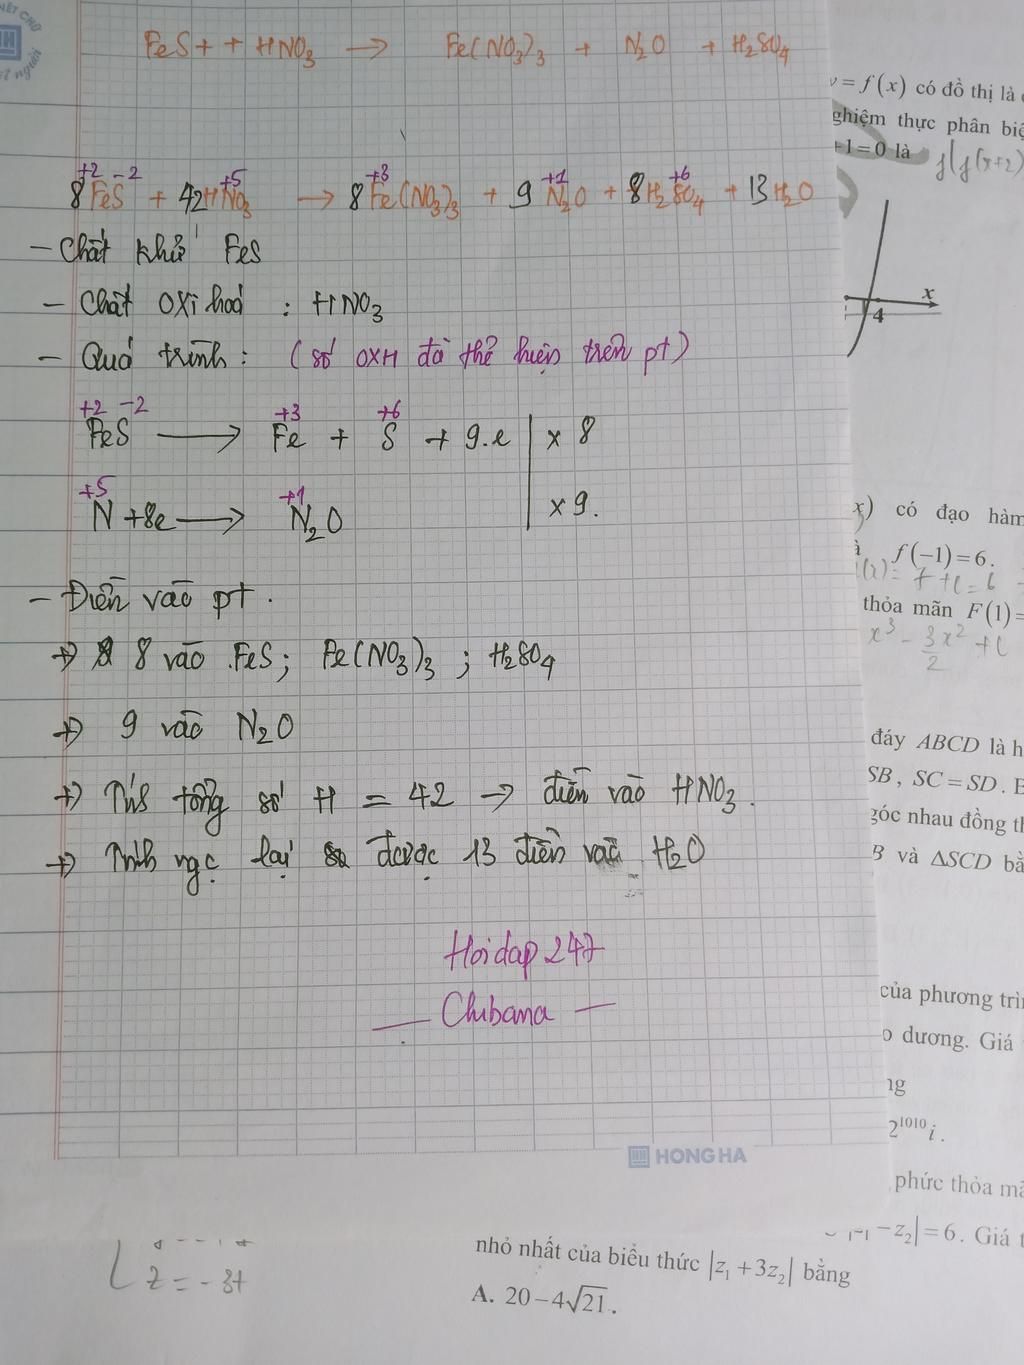 FeS + + HNO3 → Fe(NO3)3 + N2O + H2SO4
+2 -2 +5 +3 +1 +6
8FeS + 42HNO3 → 8Fe(NO3)3 + 9N2O + 8H2SO4 + 13H2O
- Chất khử FeS
- Chất oxi hoá : HNO3
- Quá trình: (số OXH đã thể hiện trên pt)
+2 -2 +3 +6
FeS → Fe + S + 9.e | x 8
+5 +1
N +8e → N2O | x 9.
- Điền vào pt.
→ 8 vào FeS; Fe(NO3)3 ; H2SO4
→ 9 vào N2O
→ tổng số H = 42 → điền vào HNO3.
→ Tính ngc lại được 13 điền vào H2O
Hoidap 247
— Chibana —
HONG HA
y = f(x) có đồ thị là
nghiệm thực phân biệ
+1=0 là f(f(x+2)
x
4
x) có đạo hàm
f(-1)=6.
7+C=6
thỏa mãn F(1)=
x³ - 3x²/2 + C
đáy ABCD là h
SB, SC = SD. E
góc nhau đồng th
B và ΔSCD bằ
của phương trìn
o dương. Giá
ng
2^1010 i.
phức thỏa mã
-z2|=6. Giá t
z = -3t
nhỏ nhất của biểu thức |z1+3z2| bằng
A. 20-4√21.